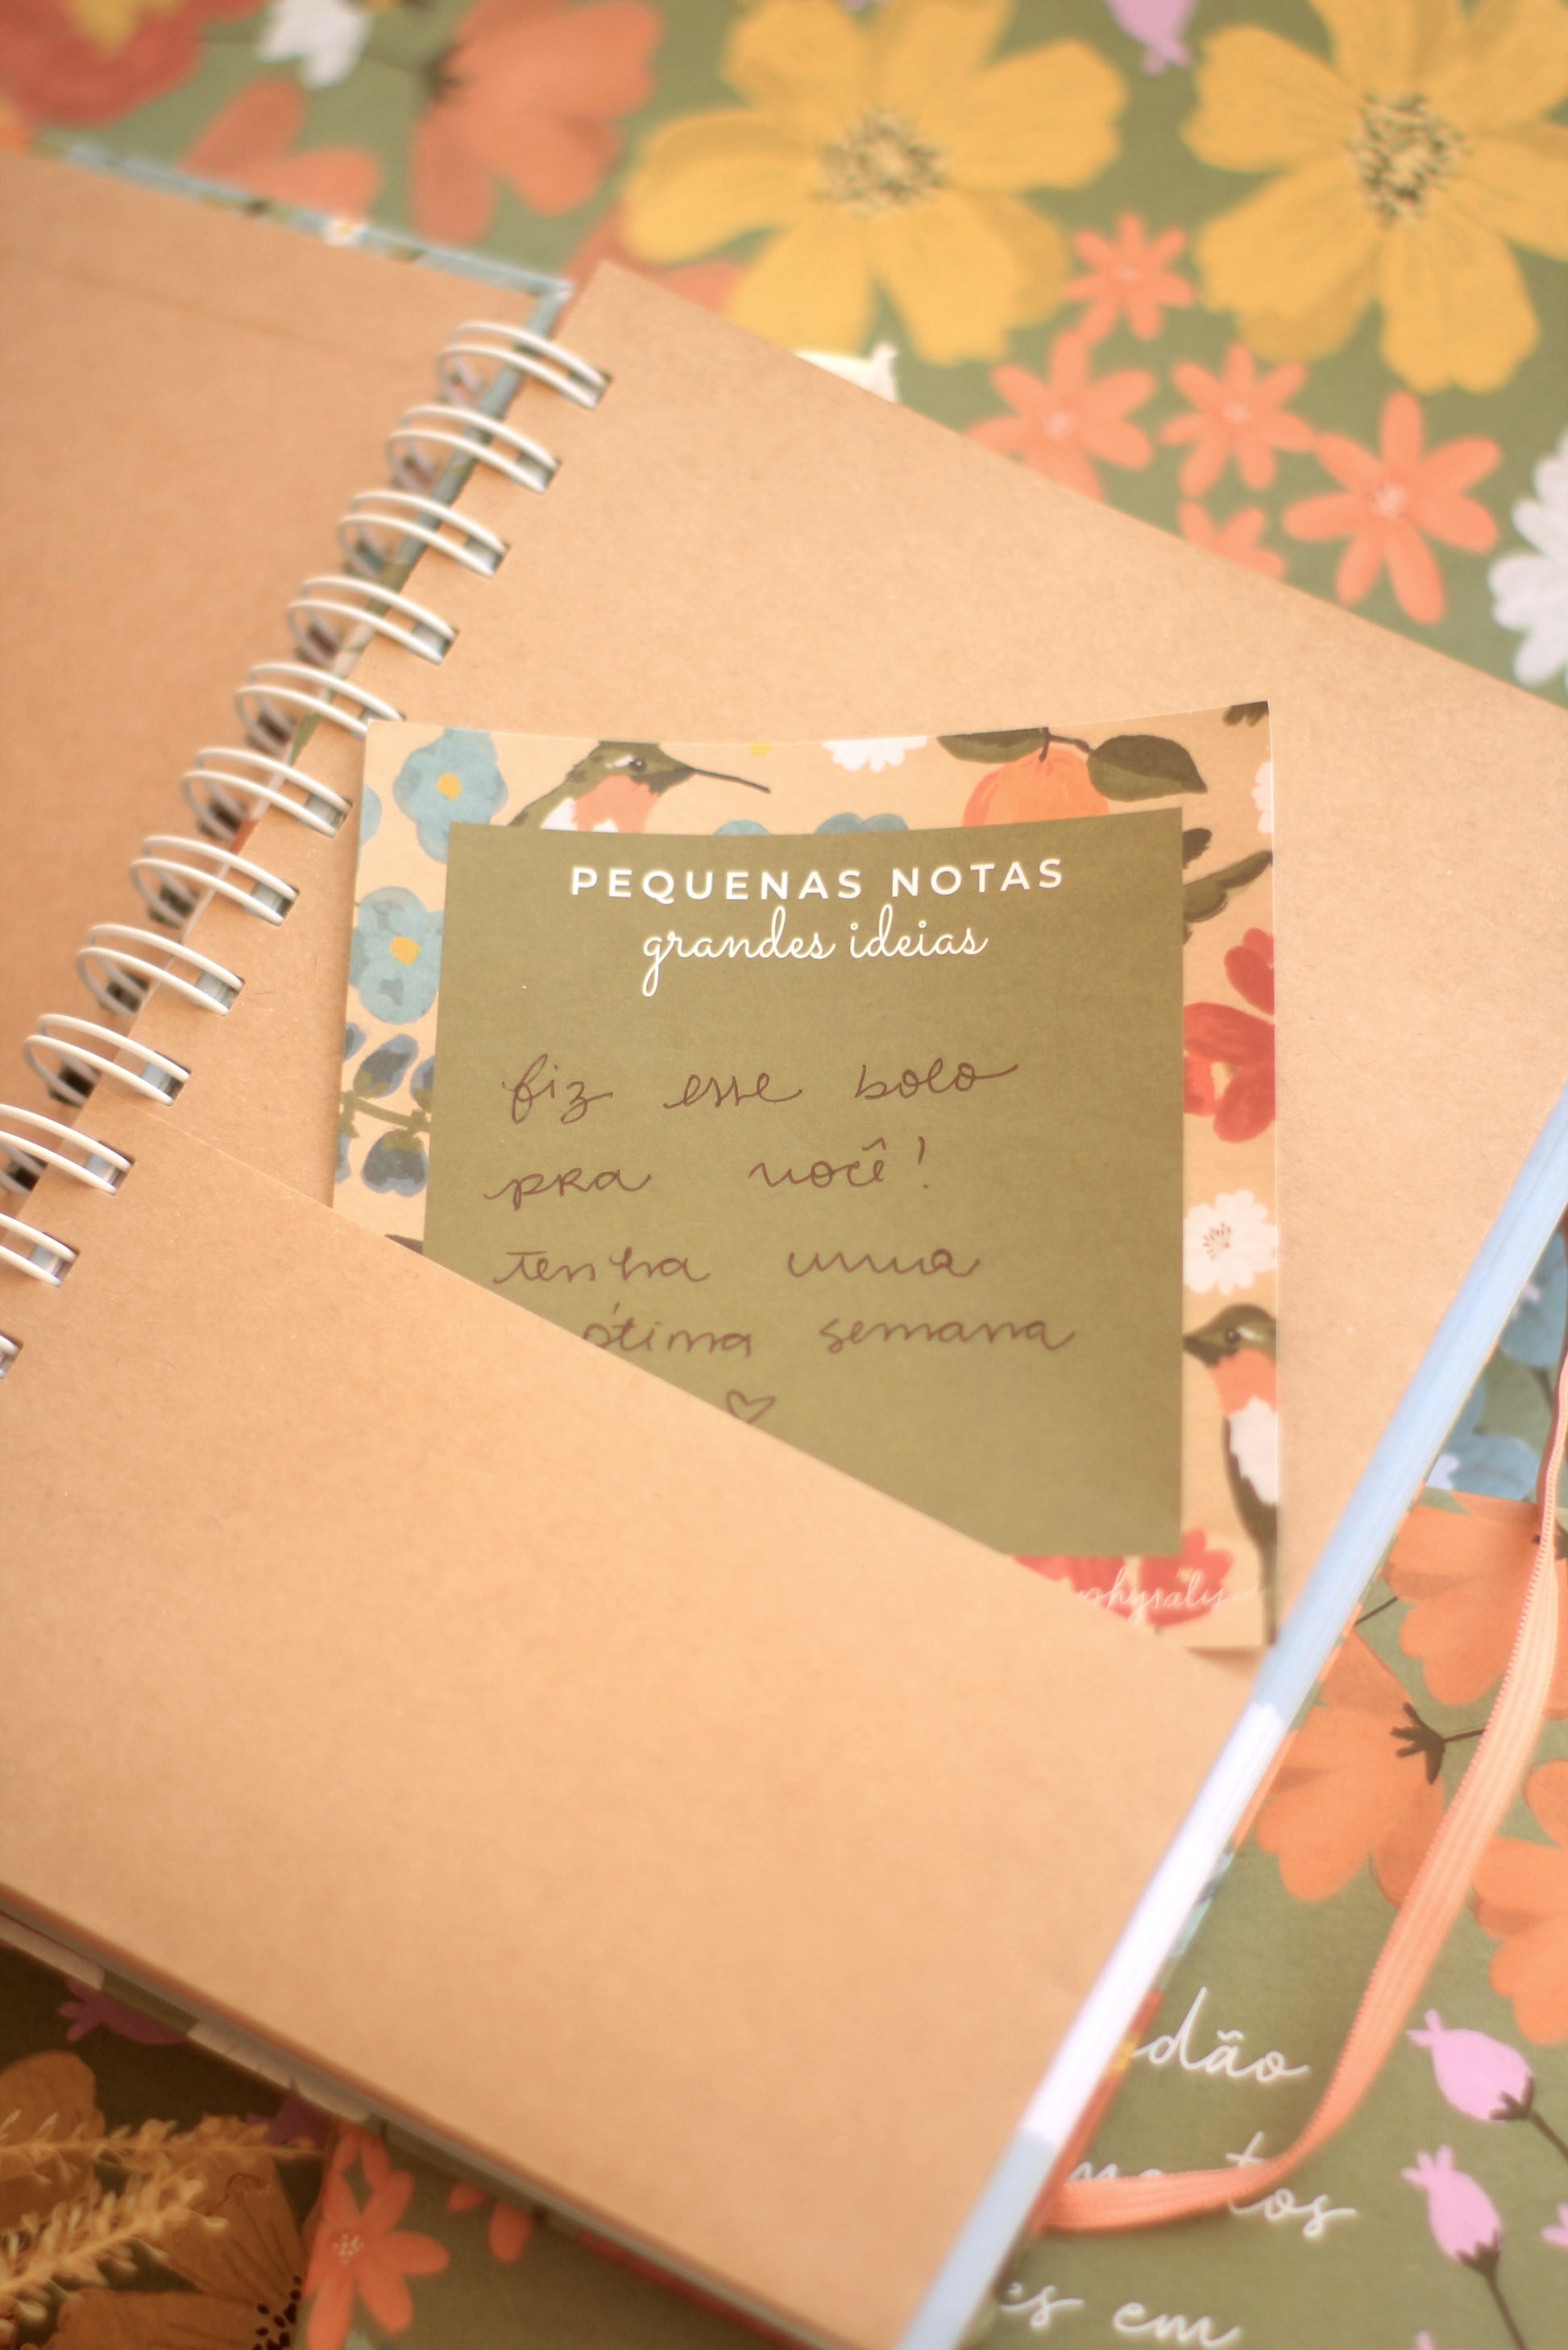 PEQUENAS NOTAS
grandes ideias
fiz esse bolo
pra você!
tenha uma
ótima semana
physaly
dão
tos
es em